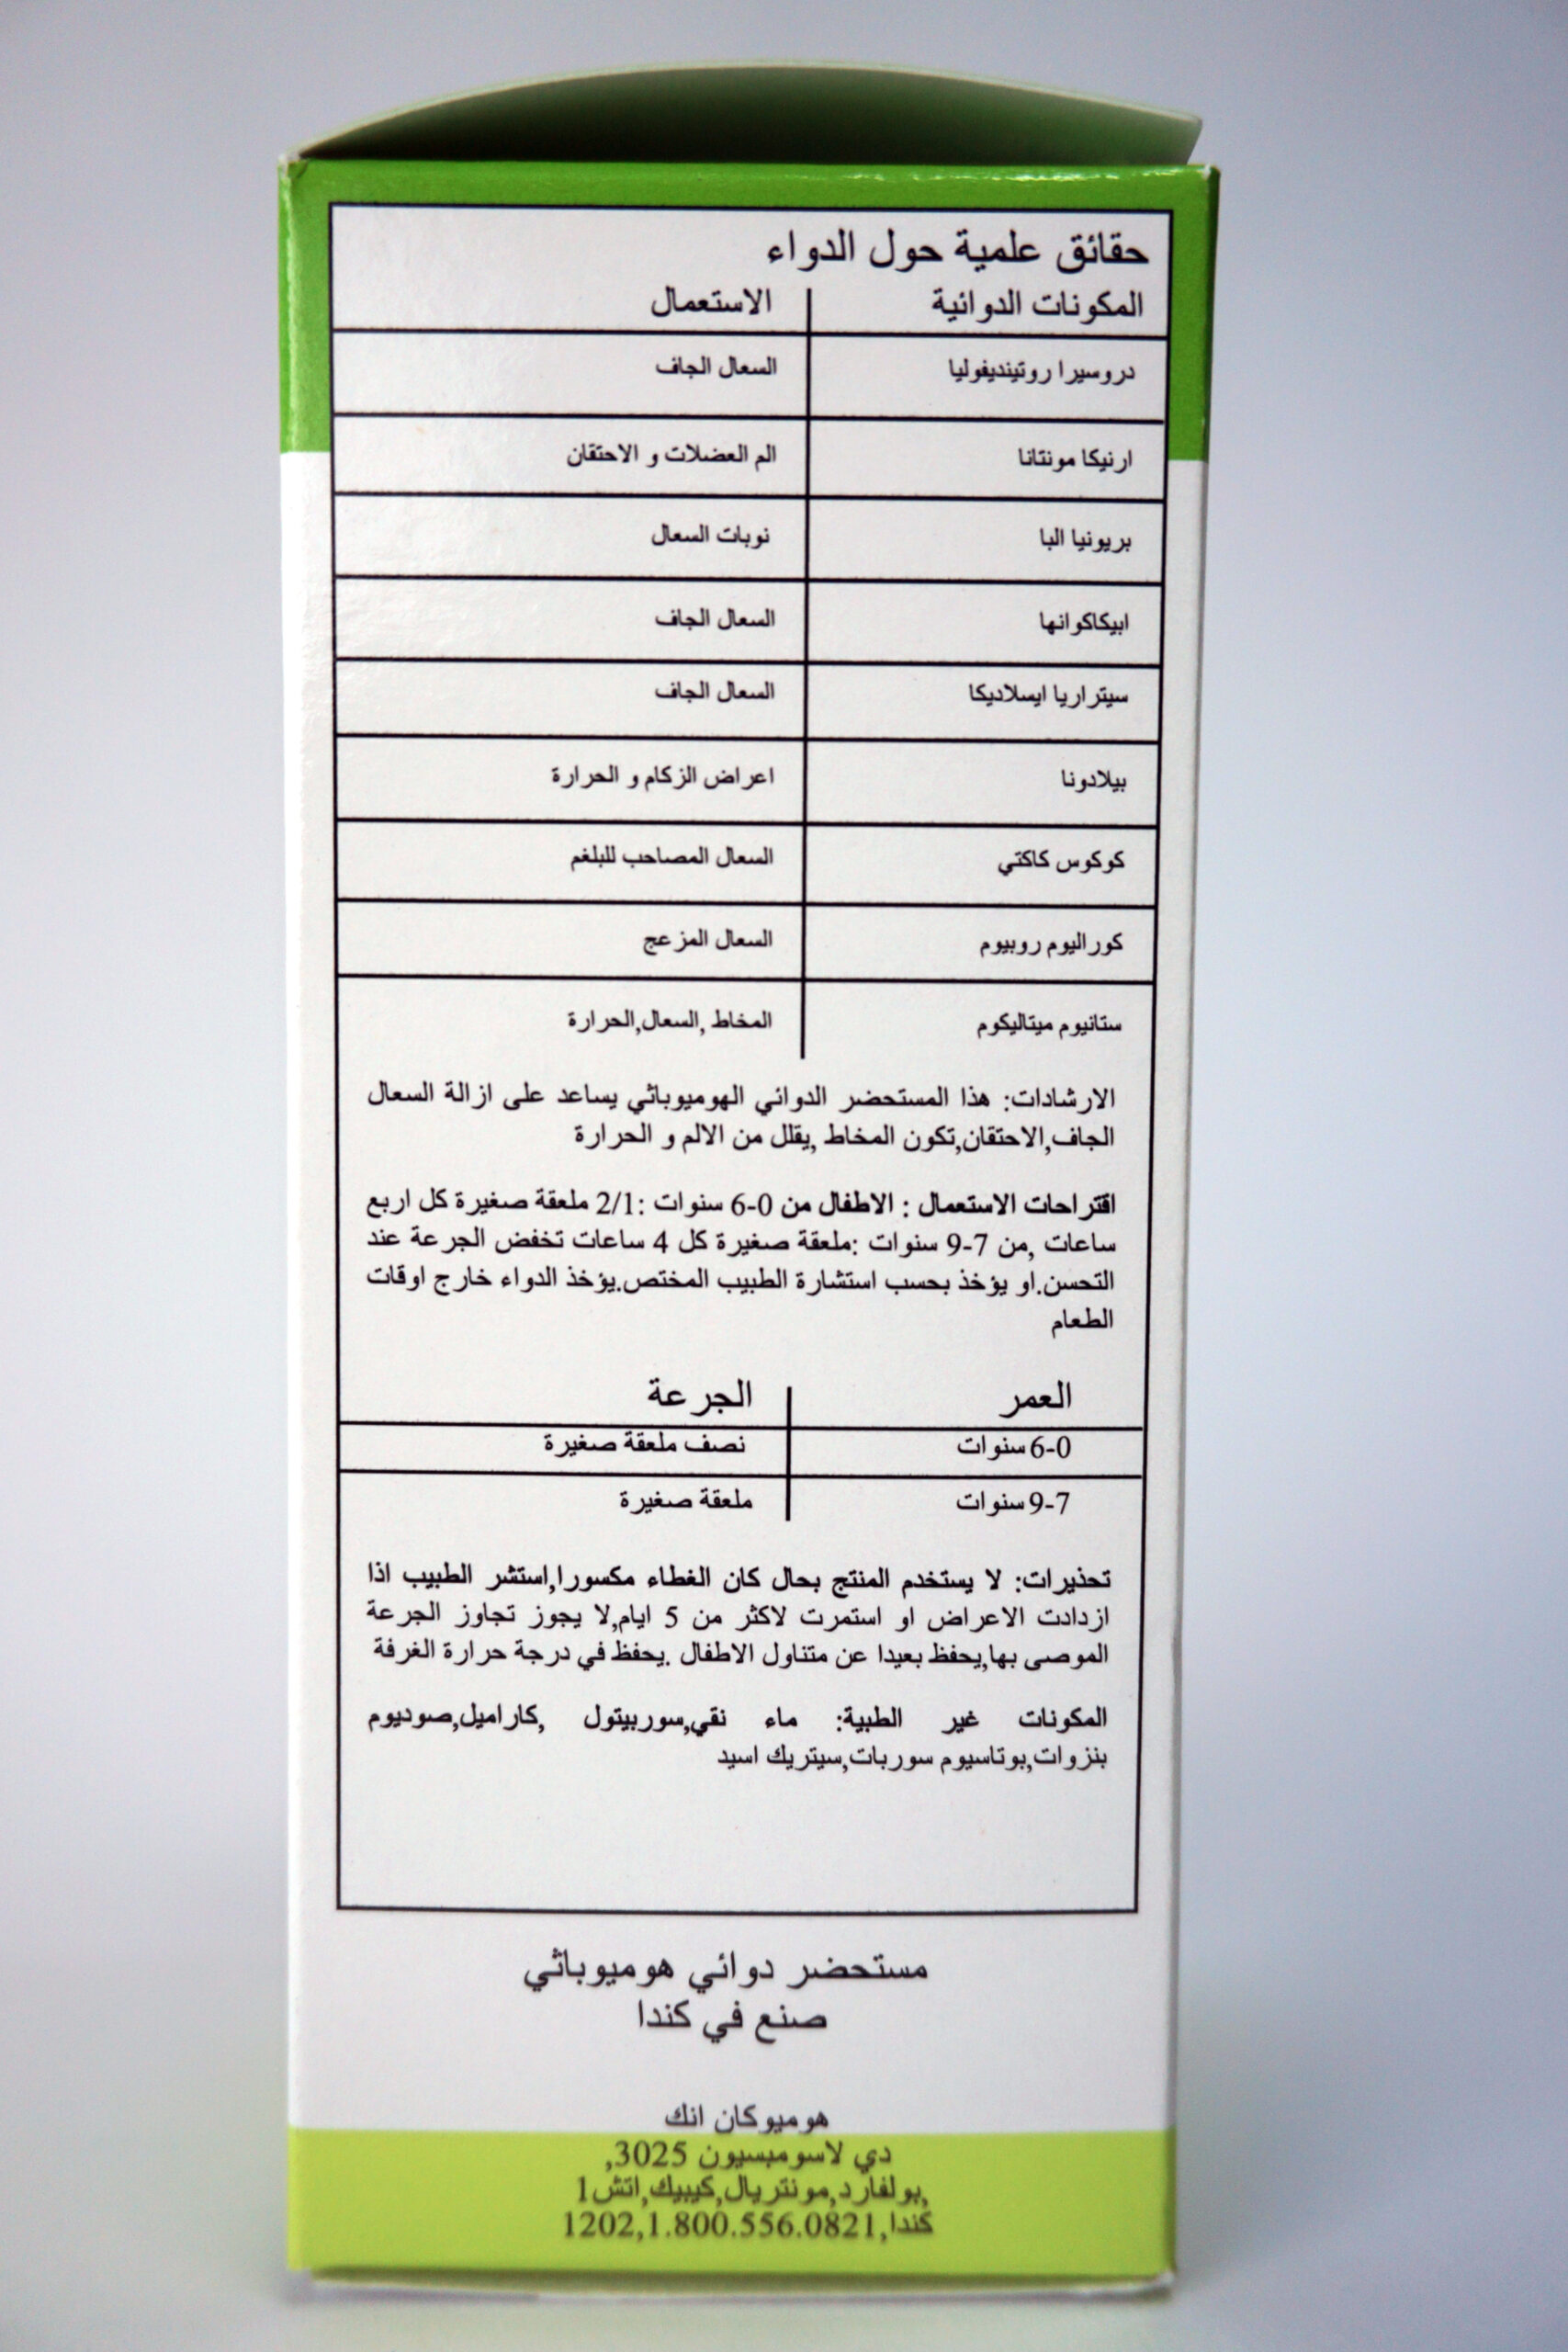 حقائق علمية حول الدواء
المكونات الدوائية الاستعمال
دروسيرا روتينديفوليا السعال الجاف
ارنيكا مونتانا الم العضلات و الاحتقان
بريونيا البا نوبات السعال
ابيكاكوانها السعال الجاف
سيتراريا ايسلاديكا السعال الجاف
بيلادونا اعراض الزكام و الحرارة
كوكوس كاكتي السعال المصاحب للبلغم
كوراليوم روبيوم السعال المزعج
ستانيوم ميتاليكوم المخاط ,السعال,الحرارة
الارشادات: هذا المستحضر الدوائي الهوميوباثي يساعد على ازالة السعال
الجاف,الاحتقان,تكون المخاط ,يقلل من الالم و الحرارة
اقتراحات الاستعمال : الاطفال من 0-6 سنوات :2/1 ملعقة صغيرة كل اربع
ساعات ,من 7-9 سنوات :ملعقة صغيرة كل 4 ساعات تخفض الجرعة عند
التحسن.او يؤخذ بحسب استشارة الطبيب المختص.يؤخذ الدواء خارج اوقات
الطعام
العمر الجرعة
6-0 سنوات نصف ملعقة صغيرة
9-7 سنوات ملعقة صغيرة
تحذيرات: لا يستخدم المنتج بحال كان الغطاء مكسورا,استشر الطبيب اذا
ازدادت الاعراض او استمرت لاكثر من 5 ايام,لا يجوز تجاوز الجرعة
الموصى بها,يحفظ بعيدا عن متناول الاطفال .يحفظ في درجة حرارة الغرفة
المكونات غير الطبية: ماء نقي,سوربيتول ,كاراميل,صوديوم
بنزوات,بوتاسيوم سوربات,سيتريك اسيد
مستحضر دوائي هوميوباثي
صنع في كندا
هوميوكان انك
دي لاسومبسيون 3025,
,بولفارد,مونتريال,كيبيك,اتش1
كندا,1202,1.800.556.0821